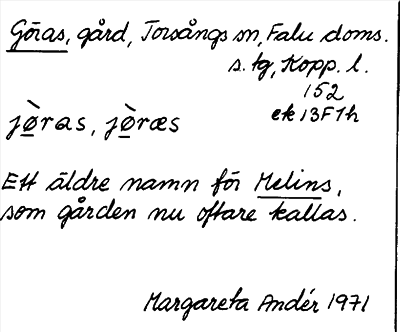 Göras, gård, Torsångs sn, Falu doms.
s. tg, Kopp. l.
152
ek 13F1h
jø̀ras, jø̀ræs
Ett äldre namn för Melins,
som gården nu oftare kallas.
Margareta Andér 1971